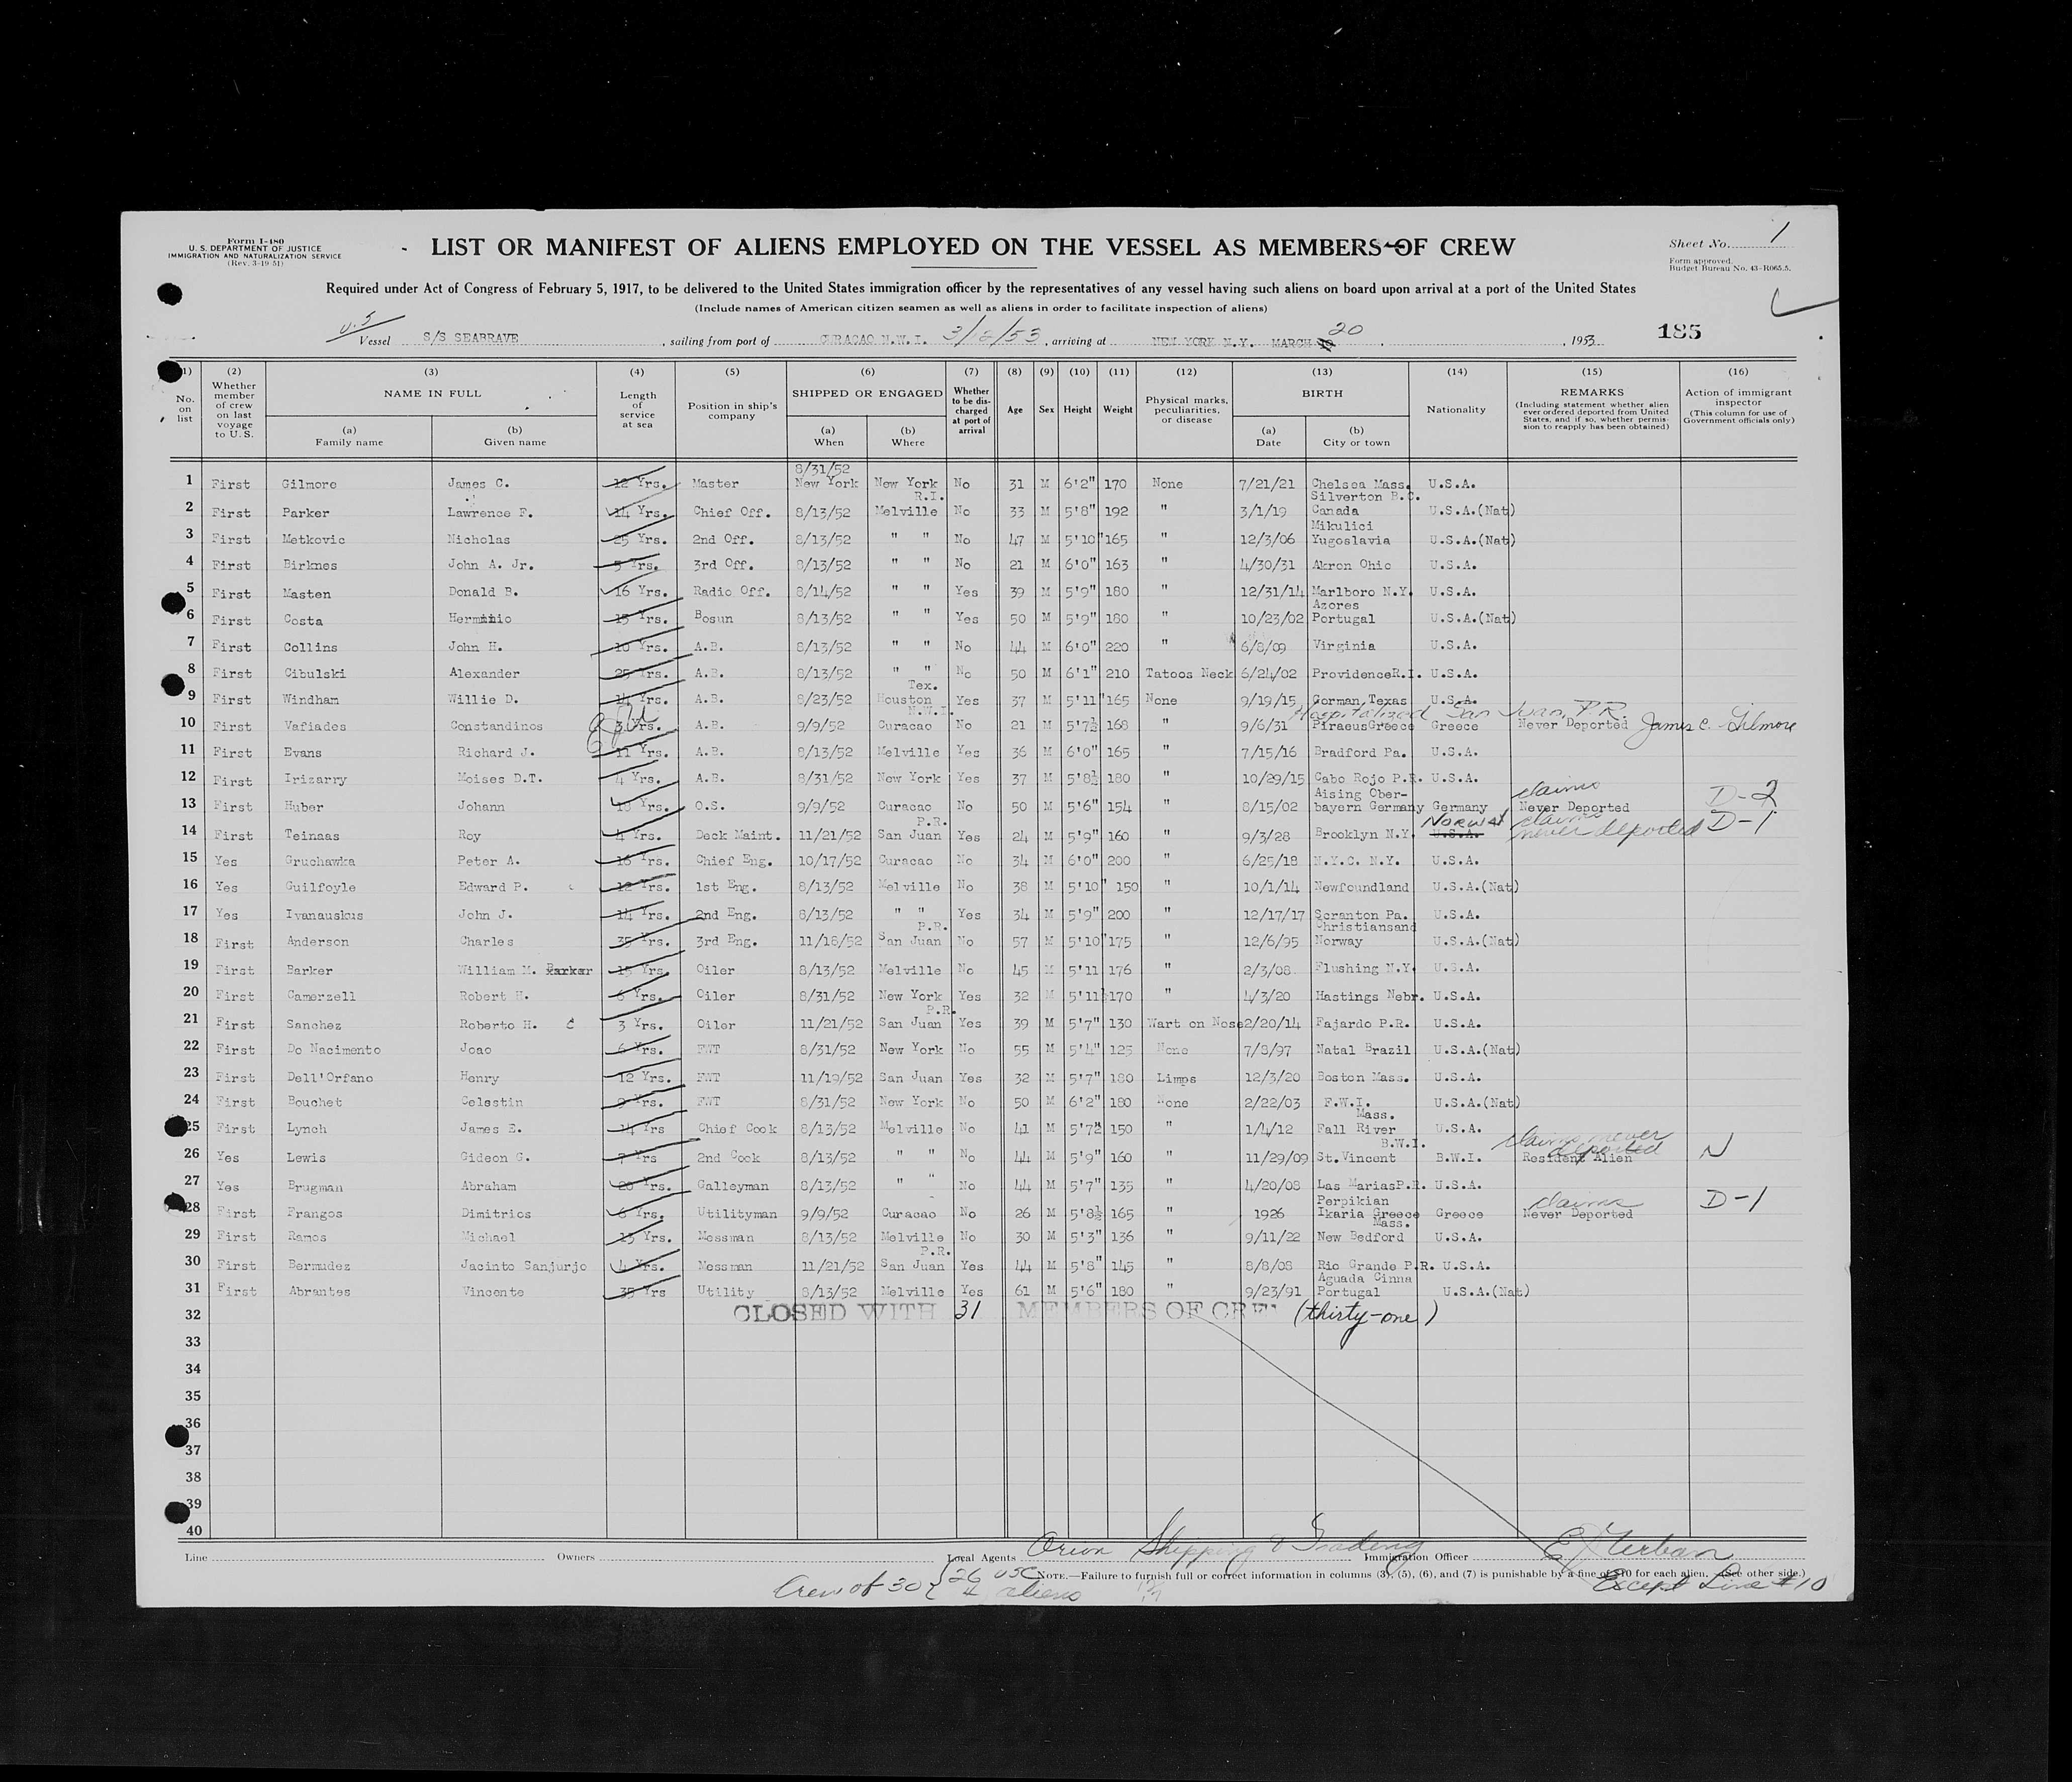 Form I-480
U. S. DEPARTMENT OF JUSTICE
IMMIGRATION AND NATURALIZATION SERVICE
(Rev. 3-19-51)
LIST OR MANIFEST OF ALIENS EMPLOYED ON THE VESSEL AS MEMBERS OF CREW
Sheet No. 1
Form approved.
Budget Bureau No. 43-R065.5.
Required under Act of Congress of February 5, 1917, to be delivered to the United States immigration officer by the representatives of any vessel having such aliens on board upon arrival at a port of the United States
(Include names of American citizen seamen as well as aliens in order to facilitate inspection of aliens)
U.S
Vessel S/S SEABRAVE, sailing from port of CURACAO N.W.I. 3/12/53, arriving at NEW YORK N.Y. MARCH 20, 1953 185
(1) (2) (3) (4) (5) (6) (7) (8) (9) (10) (11) (12) (13) (14) (15) (16)
No. on list
Whether member of crew on last voyage to U.S.
NAME IN FULL
(a) Family name
(b) Given name
Length of service at sea
Position in ship's company
SHIPPED OR ENGAGED
(a) When
(b) Where
Whether to be discharged at port of arrival
Age
Sex
Height
Weight
Physical marks, peculiarities, or disease
BIRTH
(a) Date
(b) City or town
Nationality
REMARKS
(Including statement whether alien ever ordered deported from United States, and if so, whether permission to reapply has been obtained)
Action of immigrant inspector
(This column for use of Government officials only)
1 First Gilmore James C. 12 Yrs. Master 8/31/52 New York New York No 31 M 6'2" 170 None 7/21/21 Chelsea Mass. U.S.A.
2 First Parker Lawrence F. 14 Yrs. Chief Off. 8/13/52 Melville R.I. No 33 M 5'8" 192 " 3/1/19 Silverton B.C. Canada U.S.A.(Nat)
3 First Metkovic Nicholas 25 Yrs. 2nd Off. 8/13/52 " " No 47 M 5'10" 165 " 12/3/06 Mikulici Yugoslavia U.S.A.(Nat)
4 First Birknes John A. Jr. 5 Yrs. 3rd Off. 8/13/52 " " No 21 M 6'0" 163 " 4/30/31 Akron Ohio U.S.A.
5 First Masten Donald B. 16 Yrs. Radio Off. 8/14/52 " " Yes 39 M 5'9" 180 " 12/31/14 Marlboro N.Y. U.S.A.
6 First Costa Herminio 15 Yrs. Bosun 8/13/52 " " Yes 50 M 5'9" 180 " 10/23/02 Azores Portugal U.S.A.(Nat)
7 First Collins John H. 10 Yrs. A.B. 8/13/52 " " No 44 M 6'0" 220 " 6/8/09 Virginia U.S.A.
8 First Cibulski Alexander 25 Yrs. A.B. 8/13/52 " " No 50 M 6'1" 210 Tatoos Neck 6/24/02 Providence R.I. U.S.A.
9 First Windham Willie D. 14 Yrs. A.B. 8/23/52 Tex. Houston Yes 37 M 5'11" 165 None 9/19/15 Gorman Texas U.S.A.
Hospitalized San Juan, P.R.
10 First Vafiades Constandinos 3 Yrs. A.B. 9/9/52 N.W.I. Curacao No 21 M 5'7½ 168 " 9/6/31 Piraeus Greece Greece Never Deported James C. Gilmore
11 First Evans Richard J. 11 Yrs. A.B. 8/13/52 Melville Yes 36 M 6'0" 165 " 7/15/16 Bradford Pa. U.S.A.
12 First Irizarry Moises D.T. 4 Yrs. A.B. 8/31/52 New York Yes 37 M 5'8½ 180 " 10/29/15 Cabo Rojo P.R. U.S.A.
13 First Huber Johann 10 Yrs. O.S. 9/9/52 Curacao No 50 M 5'6" 154 " 8/15/02 Aising Ober-bayern Germany Germany claims Never Deported D-2
14 First Teinaas Roy 4 Yrs. Deck Maint. 11/21/52 P.R. San Juan Yes 24 M 5'9" 160 " 9/3/28 Brooklyn N.Y. Norway U.S.A. claims never deported D-1
15 Yes Gruchawka Peter A. 16 Yrs. Chief Eng. 10/17/52 Curacao No 34 M 6'0" 200 " 6/25/18 N.Y.C. N.Y. U.S.A.
16 Yes Guilfoyle Edward P. 12 Yrs. 1st Eng. 8/13/52 Melville No 38 M 5'10" 150 " 10/1/14 Newfoundland U.S.A.(Nat)
17 Yes Ivanauskas John J. 14 Yrs. 2nd Eng. 8/13/52 " " Yes 34 M 5'9" 200 " 12/17/17 Scranton Pa. U.S.A.
18 First Anderson Charles 35 Yrs. 3rd Eng. 11/18/52 P.R. San Juan No 57 M 5'10" 175 " 12/6/95 Christiansand Norway U.S.A.(Nat)
19 First Barker William M. Barker 15 Yrs. Oiler 8/13/52 Melville No 45 M 5'11 176 " 2/3/08 Flushing N.Y. U.S.A.
20 First Camerzell Robert H. 6 Yrs. Oiler 8/31/52 New York Yes 32 M 5'11 170 " 4/3/20 Hastings Nebr. U.S.A.
21 First Sanchez Roberto H. 3 Yrs. Oiler 11/21/52 P.R. San Juan Yes 39 M 5'7" 130 Wart on Nose 2/20/14 Fajardo P.R. U.S.A.
22 First Do Nacimento Joao 6 Yrs. FWT 8/31/52 New York No 55 M 5'4" 125 None 7/8/97 Natal Brazil U.S.A.(Nat)
23 First Dell'Orfano Henry 12 Yrs. FWT 11/19/52 San Juan Yes 32 M 5'7" 180 Limps 12/3/20 Boston Mass. U.S.A.
24 First Bouchet Celestin 9 Yrs. FWT 8/31/52 New York No 50 M 6'2" 180 None 2/22/03 F.W.I. U.S.A.(Nat)
25 First Lynch James E. 14 Yrs Chief Cook 8/13/52 Melville No 41 M 5'7½ 150 " 1/4/12 Mass. Fall River U.S.A.
26 Yes Lewis Gideon G. 7 Yrs 2nd Cook 8/13/52 " " No 44 M 5'9" 160 " 11/29/09 B.W.I. St.Vincent B.W.I. claims never deported Resident Alien N
27 Yes Brugman Abraham 20 Yrs. Galleyman 8/13/52 " " No 44 M 5'7" 135 " 4/20/08 Las Marias P.R. U.S.A.
28 First Frangos Dimitrios 6 Yrs. Utilityman 9/9/52 Curacao No 26 M 5'8½ 165 " 1926 Perpikian Ikaria Greece Greece claims Never Deported D-1
29 First Ramos Michael 15 Yrs. Messman 8/13/52 Melville No 30 M 5'3" 136 " 9/11/22 Mass. New Bedford U.S.A.
30 First Bermudez Jacinto Sanjurjo 4 Yrs. Messman 11/21/52 P.R. San Juan Yes 44 M 5'8" 145 " 8/8/08 Rio Grande P.R. U.S.A.
31 First Abrantes Vincente 35 Yrs Utility 8/13/52 Melville Yes 61 M 5'6" 180 " 9/23/91 Aguada Cinna Portugal U.S.A.(Nat)
32 CLOSED WITH 31 MEMBERS OF CREW (thirty-one)
33
34
35
36
37
38
39
40
Line Owners Local Agents Orion Shipping & Trading Immigration Officer
NOTE.—Failure to furnish full or correct information in columns (3), (5), (6), and (7) is punishable by a fine of $10 for each alien. (See other side.)
Crew of 30 { 26 USC
4 aliens
Except Line #10